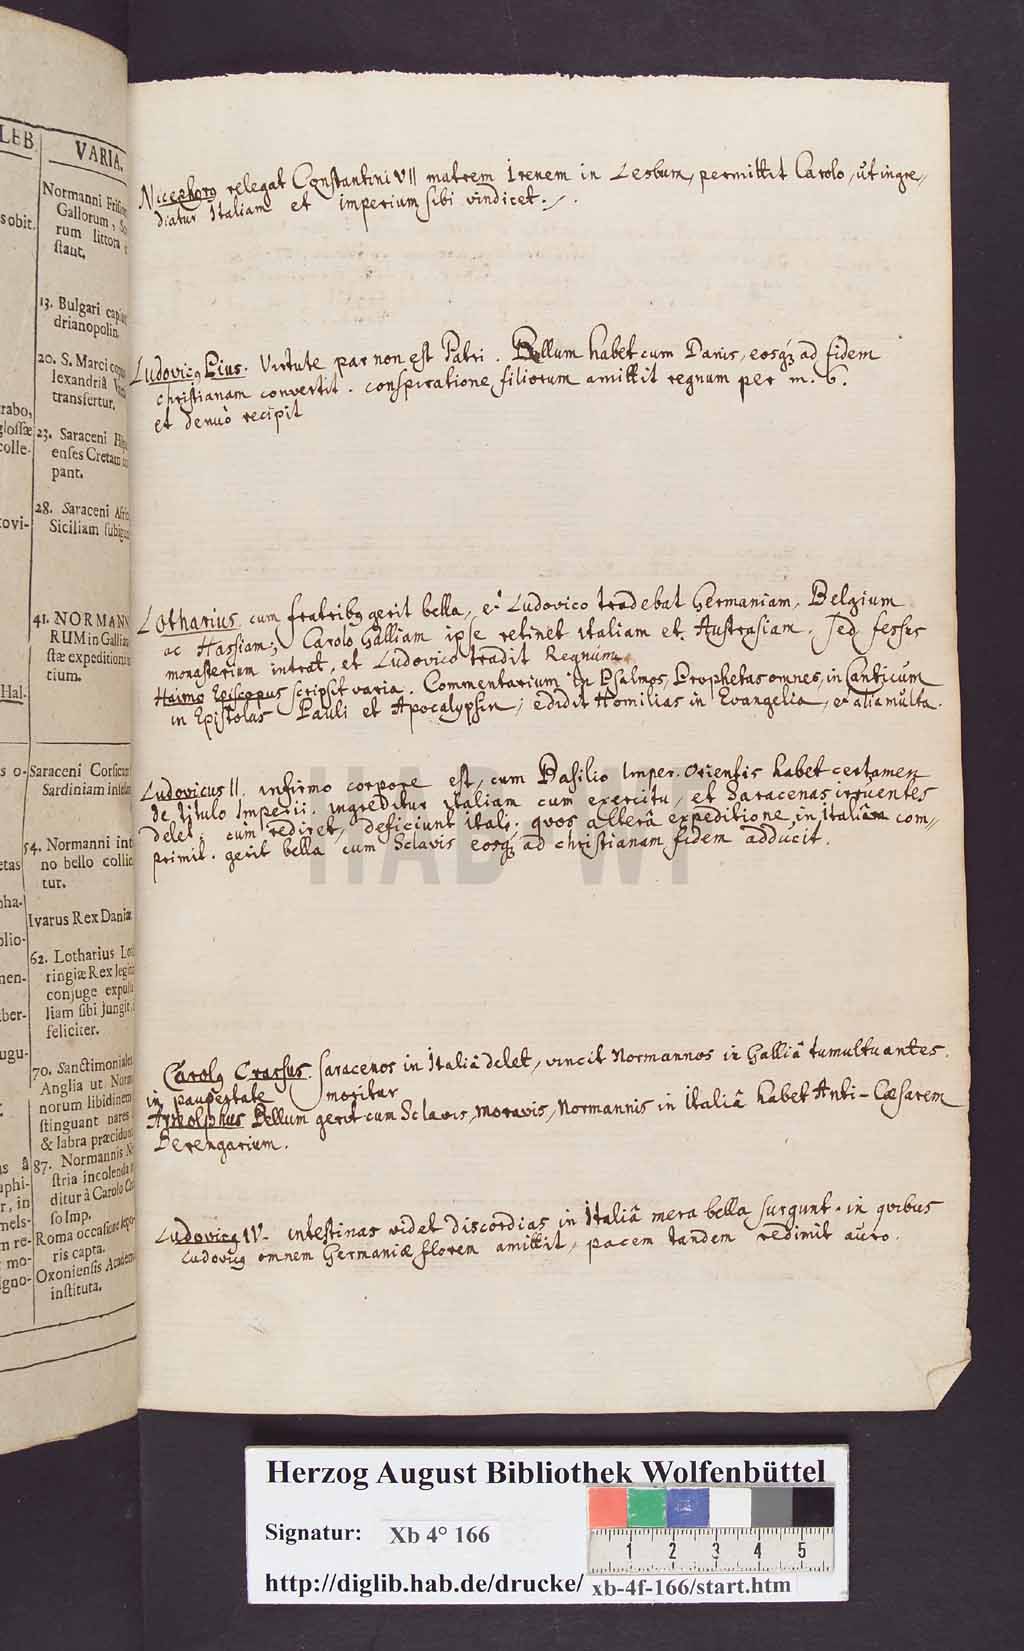 LEB.
VARIA.
Normanni Frisior
Gallorum, Sc
rum littora
stant.
sobit.
13. Bulgari capi
drianopolin.
20. S. Marci corpus
lexandriâ
transfertur.
rabo,
glossæ
colle-
23. Saraceni
enses Cretam
pant.
28. Saraceni Afri
Siciliam subig
tovi-
41. NORMAN
RUM in Gallia
stæ expeditioni
tium.
Hal-
s o-
Saraceni Corsicam
Sardiniam
54. Normanni int
no bello collid
tur.
etas
pha-
Ivarus Rex Daniæ
blio-
62. Lotharius Lot
ringiæ Rex legit
conjuge expuls
liam sibi jungit,
feliciter.
men-
ber-
ugu-
70. Sanctimoniales
Anglia ut Norm
norum libidinem
stinguant nares
& labra præcidunt
87. Normannis N
stria incolenda
ditur à Carolo Cras
so Imp.
Roma occasione lepo-
ris capta.
Oxoniensis Academ
instituta.
as â
uphi-
r, in
mels-
m re-
mo-
igno-
Nicephoro relegat Constantini VII matrem Irenem in Lesbum, permittit Carolo, ut ingre-
diatur Italiam et imperium sibi vindicet.
Ludovicꝰ Pius. Virtute par non est Patri. Bellum habet cum Danis, eosqꝫ ad fidem
christianam convertit. conspiratione filiorum amittit regnum per m. 6.
et denuò recipit
Lotharius cum fratribꝰ gerit bella, et Ludovico tradebat Germaniam, Belgium
ac Hassiam; Carolo Galliam ipse retinet italiam et Austrasiam. sed fessus
monasterium intrat, et Ludovico tradit Regnum.
Haimo Episcopus scripsit varia. Commentarium in Psalmos, Prophetas omnes, in Canticum
in Epistolas Pauli et Apocalypsin; edidit Homilias in Evangelia, et alia multa.
Ludovicus II. infirmo corpore est, cum Basilio Imper. Orientis habet certamen
de titulo Imperii. ingreditur italiam cum exercitu, et Saracenas irruentes
delet. cum rediret, deficiunt itali; quos alterâ expeditione in Italiam com-
primit. gerit bella cum Sclavis eosqꝫ ad christianam fidem adducit.
HAB WF
Carolꝰ Crassus Saracenos in Italiâ delet, vincit Normannos in Galliâ tumultuantes.
in paupertate moritur
Arnolphus Bellum gerit cum Sclavis, Moravis, Normannis in italiâ habet Anti-Cæsarem
Berengarium.
Ludovicꝰ IV. intestinas videt discordias in Italiâ mera bella surgunt. in quibus
Ludovicꝰ omnem Germaniæ florem amittit, pacem tandem redimit auro.
Herzog August Bibliothek Wolfenbüttel
Signatur: Xb 4° 166
1 2 3 4 5
http://diglib.hab.de/drucke/ xb-4f-166/start.htm